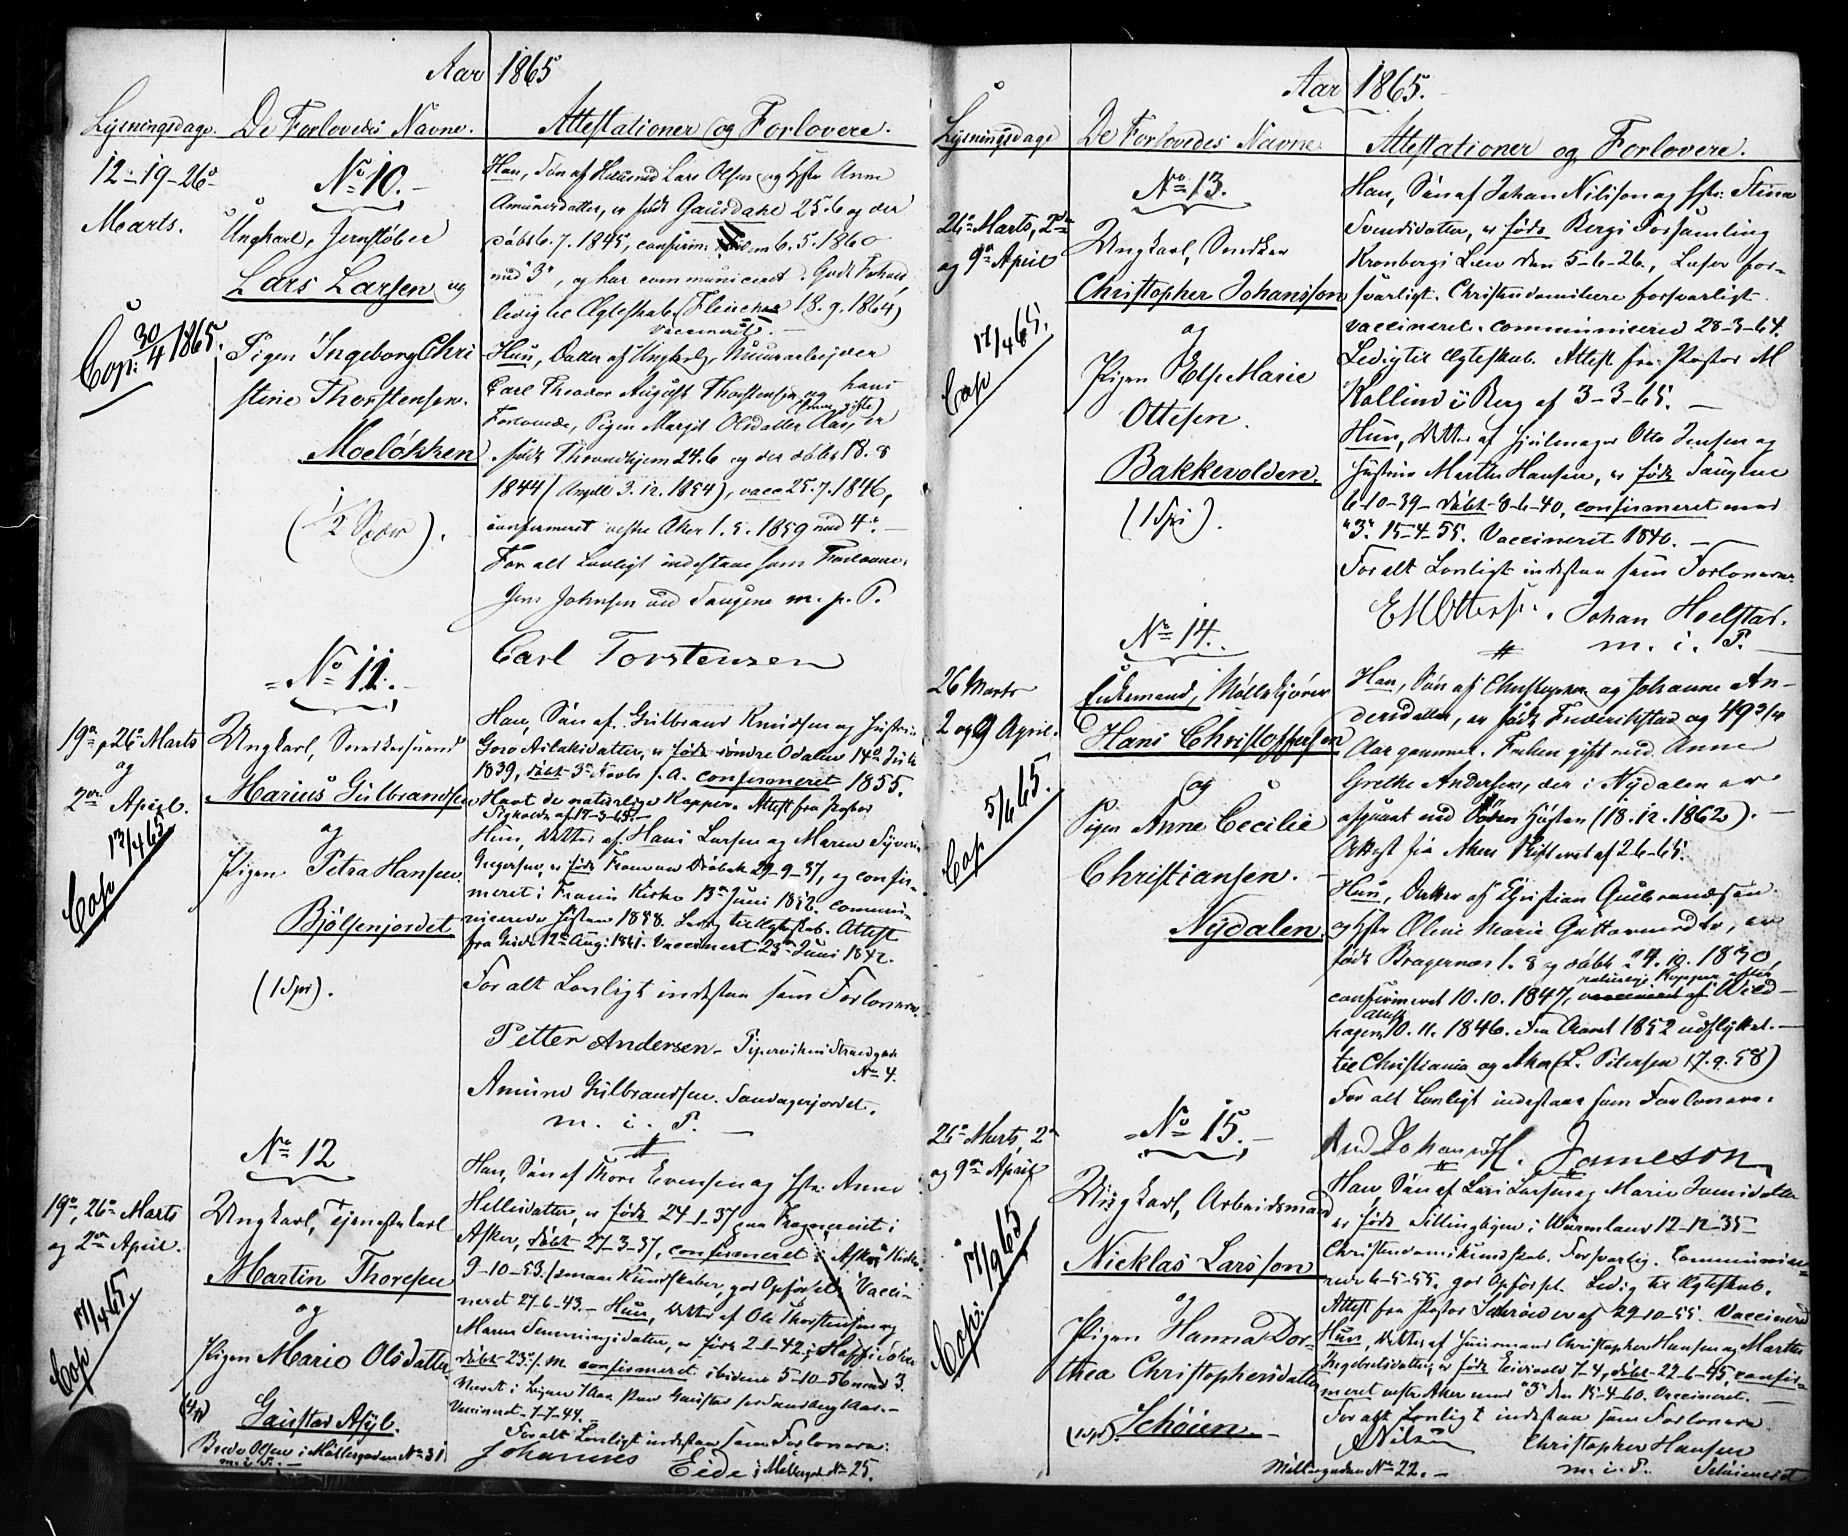 Aar 1865
Lysningsdage. De Forlovedes Navne. Attestationer og Forlovere.
12-19-26de
Marts.
No 10.
Ungkarl, Jernstøber
Lars Larsen og
Cop: 30/4 1865.
Pigen Ingeborg Chri
stine Thorstensen.
Moeløkken
(1/2 Spdr).
Han, Søn af Lars Olsen og Hstr Anne
Amundsdatter, er født Gausdahl 25.6 og der
døbt 6.7.1845, confirm. 6.5.1860
med "3", og har communiceret. Godt Forhold,
ledig til Ægteskab. (18.9.1864)
vaccineret.
Hun, Datter af Ungkarl, Murarbejder
Carl Theodor August Thorstensen og hans
Forlovede, Pigen Margit Olsdatter Aas, er
født Throndhjem 24.6 og der døbt 18.8
1844 (3.12.1854), vacc. 25.7.1846,
confirmeret vestre Aker 1.5.1859 med 4.
For alt Lovligt indestaae som Forlovere.
Jens Johnsen ved Saugene m. p. P.
Carl Torstensen
No 11.
19de, 26de Marts
og
2den April.
Cop 17/4 65
Ungkarl, Snedkersvend
Marius Gulbrandsen
og
Pigen Petra Hansen
Bjølsenjordet
(1 Spd).
Han, Søn af Gulbrand Knudsen og Hustru
Goro Aslaksdatter, er født søndre Odalen 14de Juli
1839, døbt 3die Novbr s. A. confirmeret 1855.
Havt de naturlige Kopper. Attest fra Pastor
af 17-3-65.
Hun, Datter af Hans Larsen og Maren
er født Drøbak 29-9-37, og confir-
meret i Kirke 13de Juni 1852. commu-
nicerede Høsten 1858. Ledig til Ægteskab. Attest
12te Aug: 1861. Vaccineret 23de Juni 1842.
For alt Lovligt indestaa som Forlovere.
Petter Andersen - Pipervikens Strandgade
No 4.
Amund Gulbrandsen. Sandagerjordet.
m. i. P.
No 12
19de, 26de Marts
og 2den April.
Cop 17/4 65.
Ungkarl, Tjenestekarl
Martin Thoresen
og
Pigen Marie Olsdatter
Gaustad Asyl.
Han, Søn af Thore Evensen og Hstr: Anne
Hellesdatter, er født 24-1-37 paa i
Asker, døbt 27-3-37, confirmeret i Asker Kirke
9-10-53. smaae Kundskaber, god Opførsel. Vacci-
neret 27-6-43. - Hun, Datter af Ole Thorstensen og
Maren er født 2-1-42,
døbt 23 s. M. confirmeret ibidem 5-10-56 med 3.
Været i Tjeneste
Vaccineret 7-7-44.
For alt Lovligt indestaa som Forlovere:
Brede Olsen i Møllergaden No 31
m. i. P.
Johannes Eide i Møllergd. No 25.
Aar 1865.
Lysningsdage De Forlovedes Navne Attestationer og Forlovere.
No 13.
26de Marts, 2den
og 9de April
Cop 17/4 65.
Ungkarl, Snedker
Christopher Johansson
og
Pigen Else Marie
Ottesen.
Bakkevolden.
(1 Spd).
Han, Søn af Johan Nilsson og Hstr: Stina
Svendsdatter, er født Bergs Forsamling
Kronbergs Len den 5-6-26, Læser for-
svarligt. Christendomslære forsvarligt
vaccineret. communicered 28-3-64.
Ledig til Ægteskab. Attest fra Pastor M
Kollind i Berg af 3-3-65.
Hun, Datter af Hjulmager Otto Jensen og
Hustru Marthe Hansen, er født Saugene
6-10-39 - døbt 8-6-40, confirmeret med
"3" 15-4-55. Vaccineret 1840.
For alt Lovligt indestaa som Forlovere.
Johan Hoelstad.
m. i. P.
No 14.
26 Marts
2 og 9 April.
Cop 5/6 65.
Enkemand, Møllekjører
Hans Christoffersen
og
Pigen Anne Cecilie
Christiansen.
Nydalen.
Han, Søn af Christopher og Johanne An-
dersdatter, er født Frederikstad og 49 3/4
Aar gammel. Forhen gift med Anne
Grethe Andersen, der i Nydalen er
afgaaet ved Døden Høsten (18.12.1862).
Attest fra Akers Skifteret af 2-6-65.
Hun, Datter af Christian Gulbrandsen
og Hstr Oline Marie er
født Bragernæs 1.8 og døbt 19. 1830,
confirmeret 10.10.1847, naturlige Kopper efter
Attest 10.11.1846. Fra Aaret 1852 udflyttet.
til Christiania og Aker (L. Petersen 17.9.58)
For alt Lovligt indestaae som Forlovere.
H. Jameson
No 15.
26de Marts, 2den
og 9de April
Cop: 17/9 65
Ungkarl, Arbeidsmand
Nicklas Larsson
og
Pigen Hanna Dor-
thea Christophersdatter
(1 Spd). Schøien.
Han Søn af Lars Larsen og Marie Jonsdatter
er født i Wermland 12-12-35
Christendomskundskab. Forsvarlig. Communice-
rede 6-5-55, god Opførsel. Ledig til Ægteskab.
Attest fra Pastor Schrøder af 29-10-55. Vaccineret
Hun, Datter af Huusmand Christopher Hansen og Marthe
Ingebretsdatter, er født Eidsvold 7-4, døbt 22-6-45, confir-
meret vestre Aker med "3" den 15-4-60. Vaccineret.
For alt Lovligt indestaa som Forlovere
Nilsen
Møllergaden No 22.
Christopher Hansen
m. i. P.